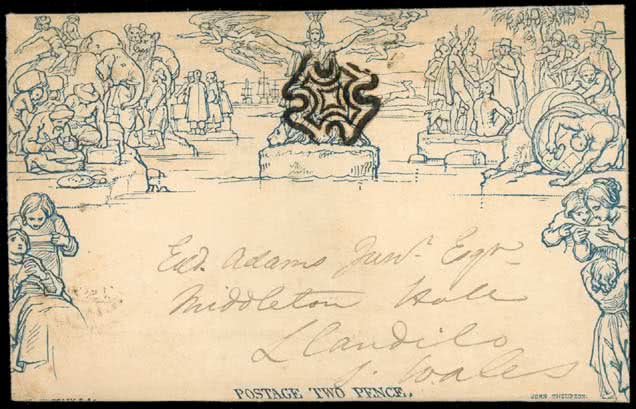 Edd. Adams Junr. Esqr.
Middleton Hall
Llandilo
S. Wales
POSTAGE TWO PENCE.
JOHN THOMPSON